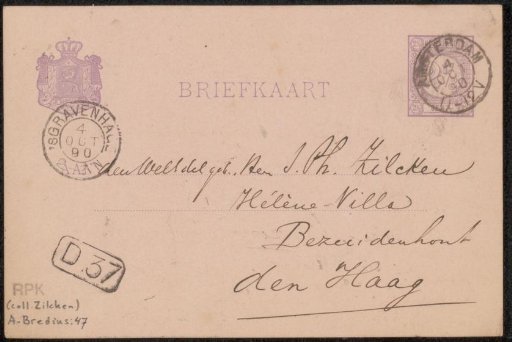 BRIEFKAART
AMSTERDAM
4 OCT 90
11-12V
'SGRAVENHAGE
4
OCT
90
AAN
den Weledelgeb. Heer Ph. Zilcken
Hélène-Villa
Bezuidenhout
den Haag
D.37
RPK
(coll Zilcken)
A. Bredius: 47